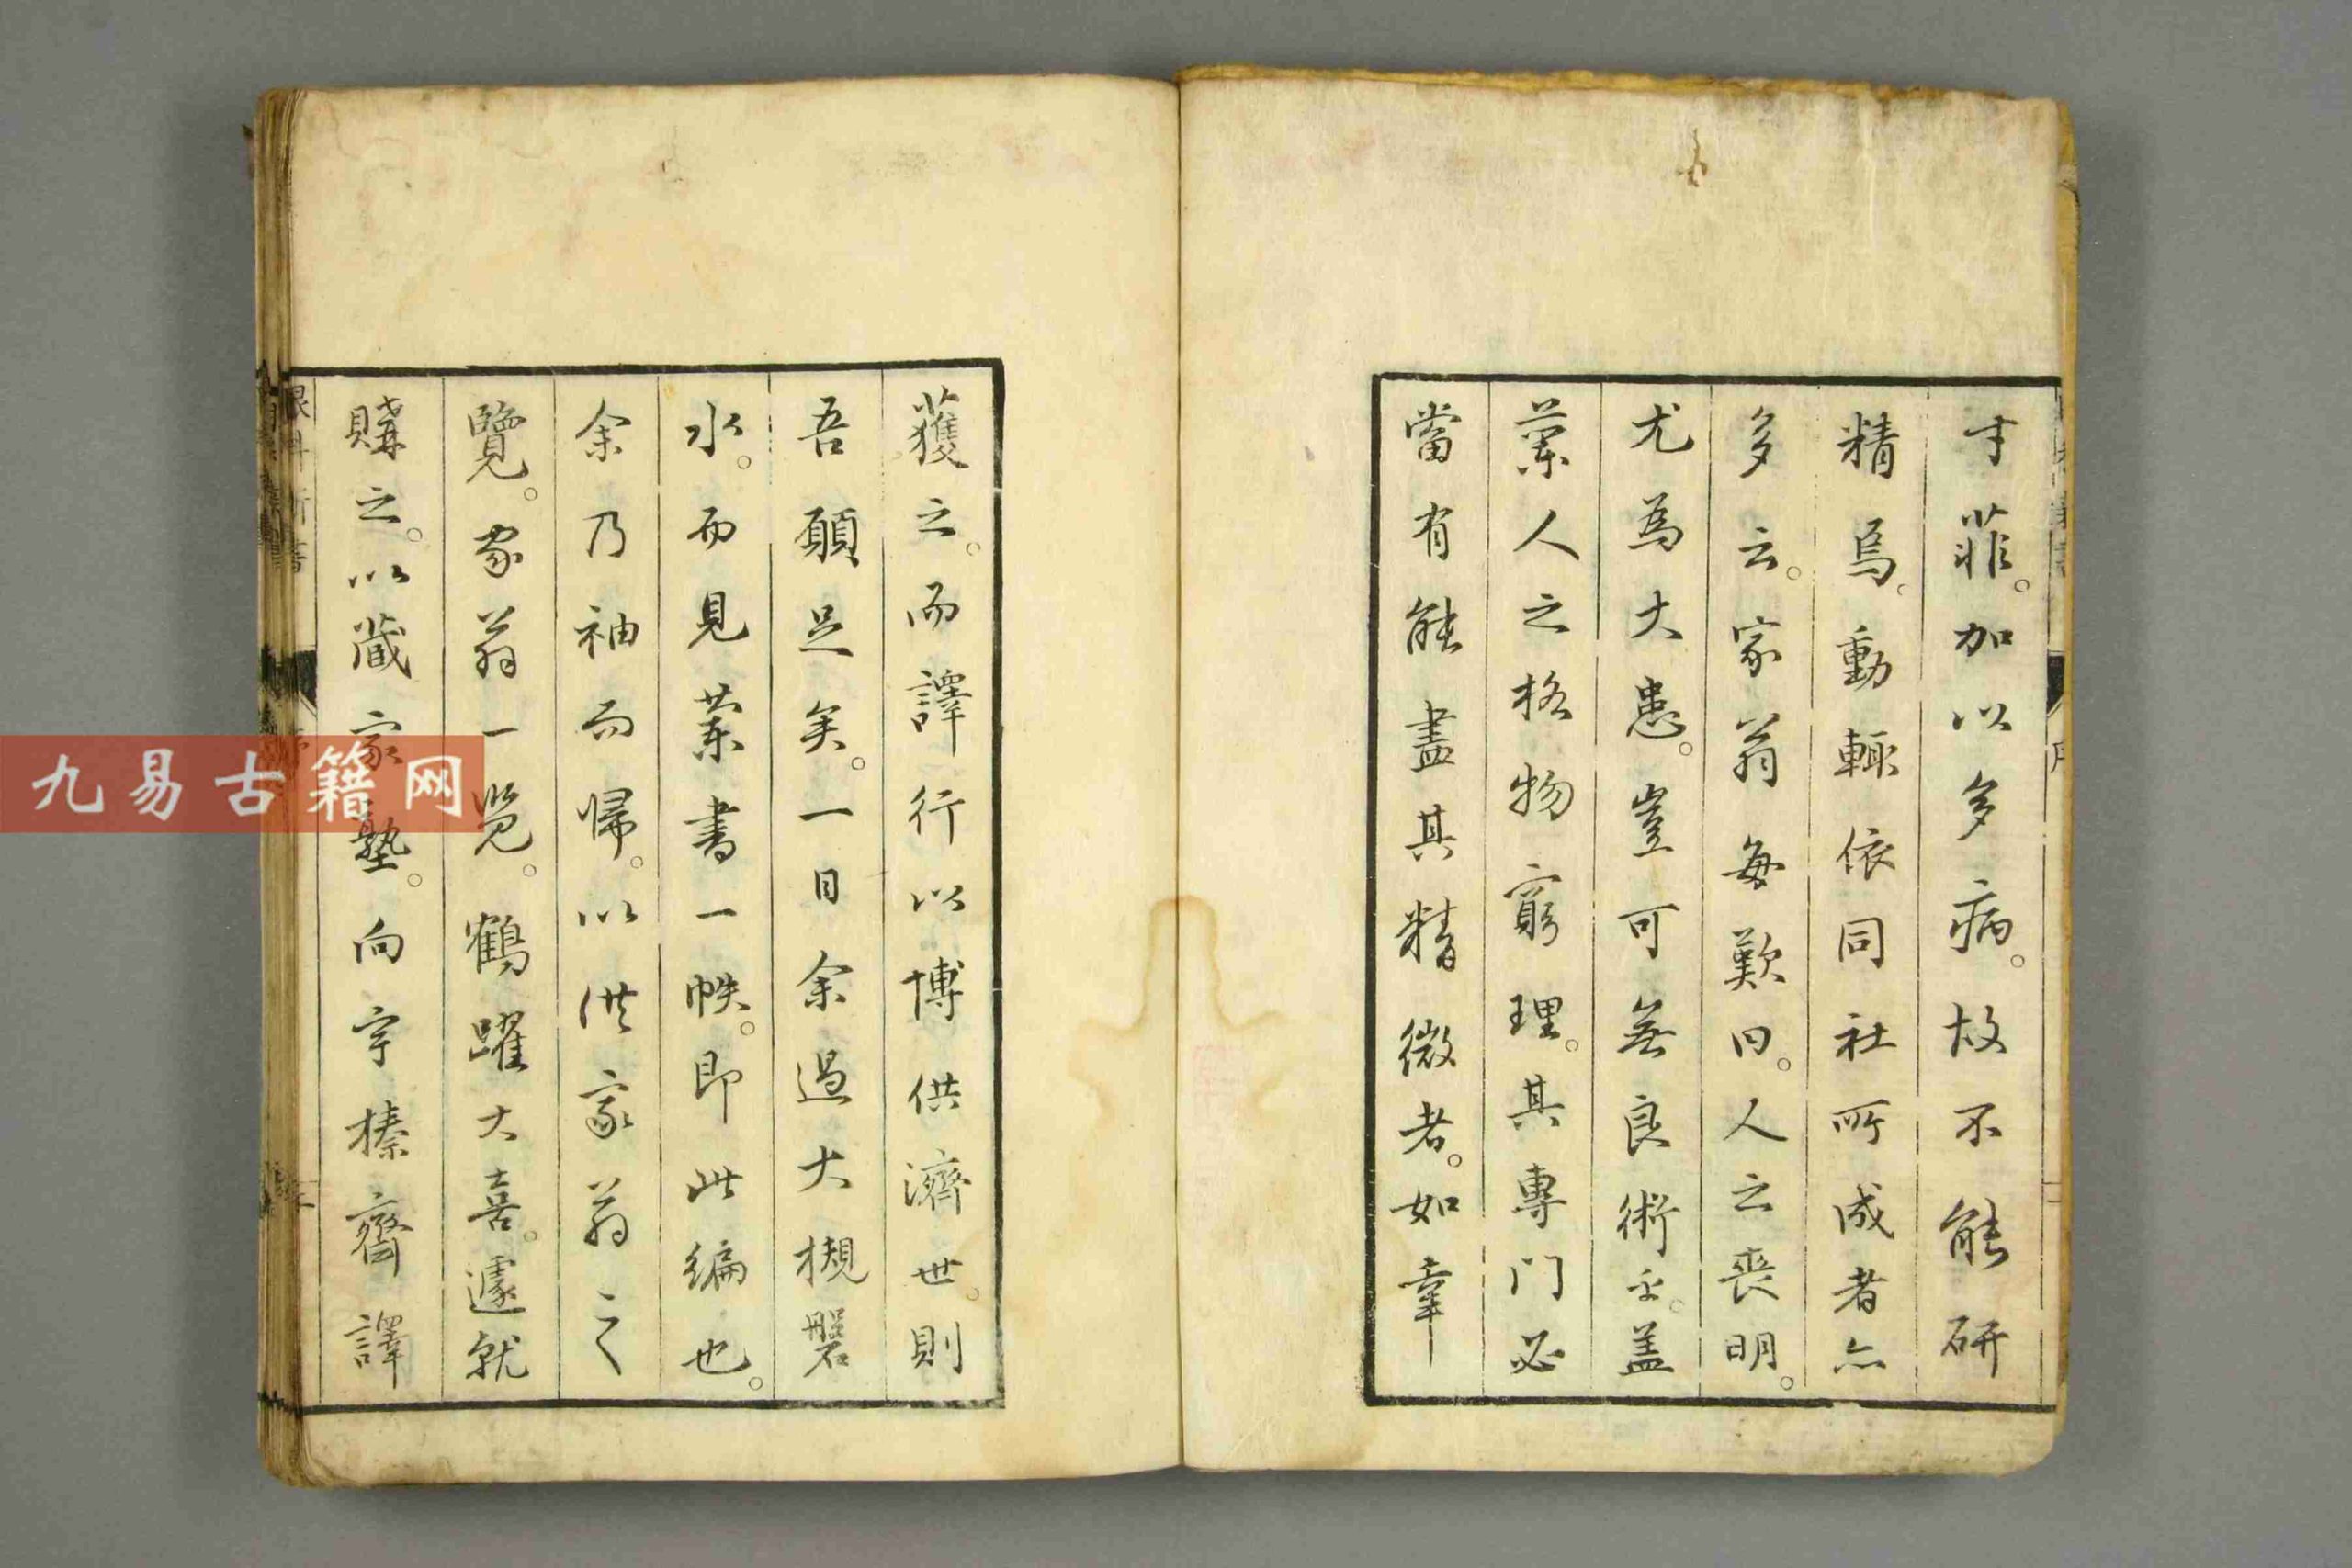 才菲。加以多病。故不能研
精焉。動輒依同社所成者亦
多云。家翁每歎曰。人之喪明。
尤為大患。豈可無良術乎。蓋
蘭人之格物窮理。其專門必
當有能盡其精微者。如幸
獲之。而譯行以博供濟世。則
吾願足矣。一日余過大槻磐
水。而見蘭書一帙。即此編也。
余乃袖而帰。以供家翁之
覽。家翁一览。鶴躍大喜。遽就
購之。以藏家塾。向宇榛齋譯
眼科新書
九易古籍网